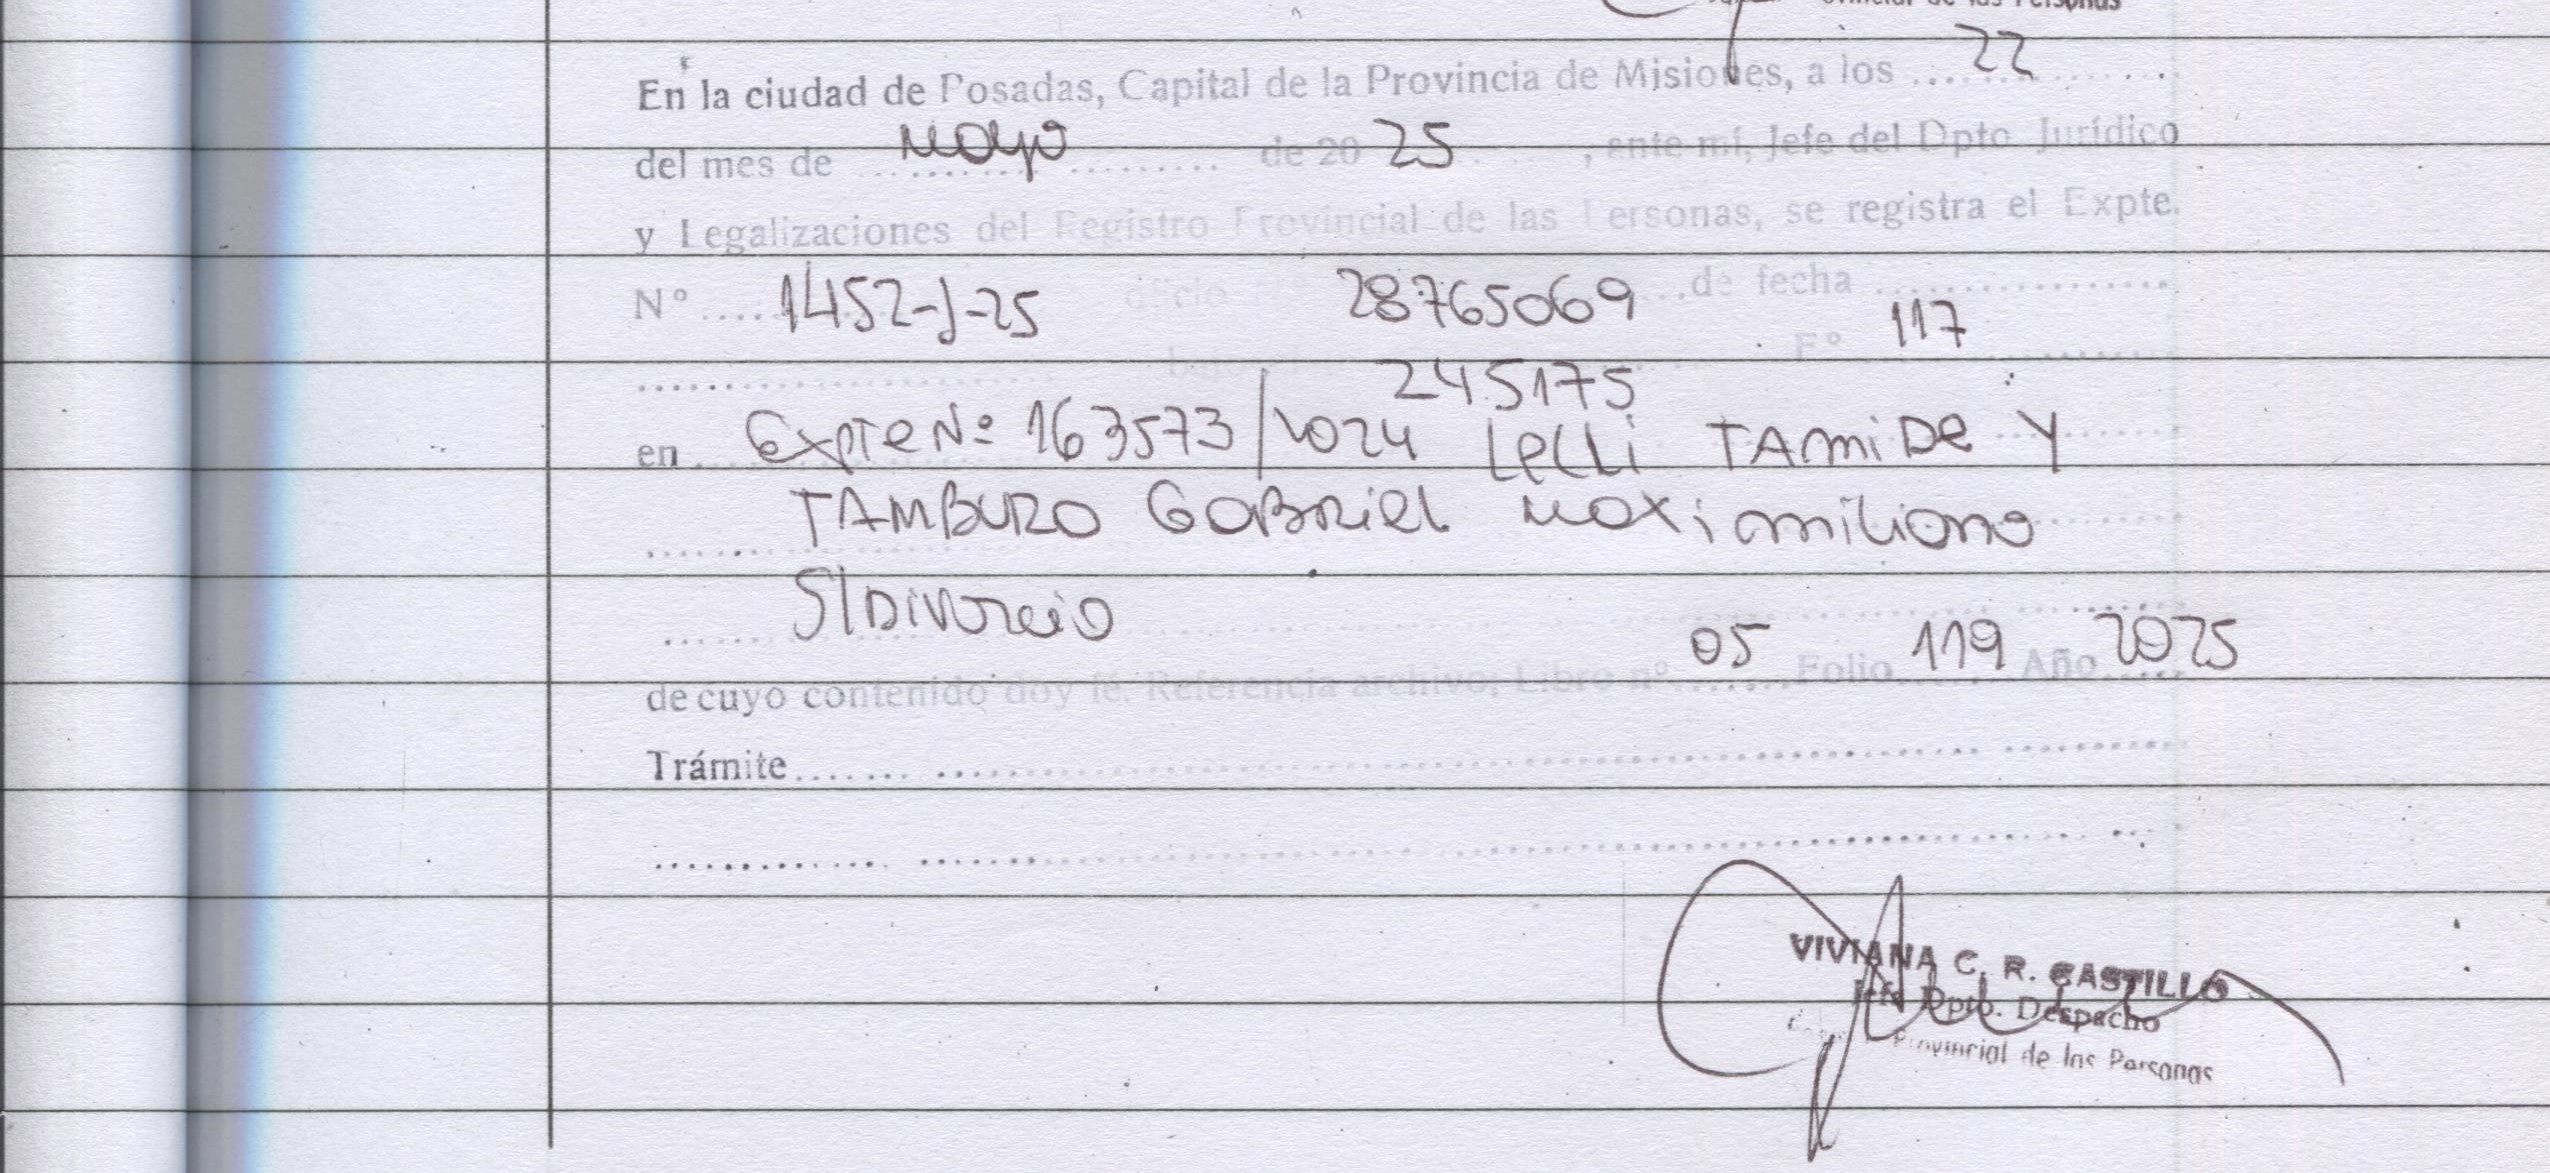 de las Personas
En la ciudad de Posadas, Capital de la Provincia de Misiones, a los ... 22
del mes de mayo de 20 25, ante mí, Jefe del Dpto Jurídico
y Legalizaciones del Registro Provincial de las Personas, se registra el Expte.
Nº 1452-J-25 oficio 28765069 de fecha
245175 Fº 117
en Expte Nº 163573/2024 Lelli TAmiDe Y
TAMBURO GABRiel Maximiliano
S/Divorcio
de cuyo contenido doy fé. Referencia archivo; Libro nº 05 Folio 119 Año 2025
Trámite
VIVIANA C. R. CASTILLO
Jefe Dpto. Despacho
Provincial de las Personas